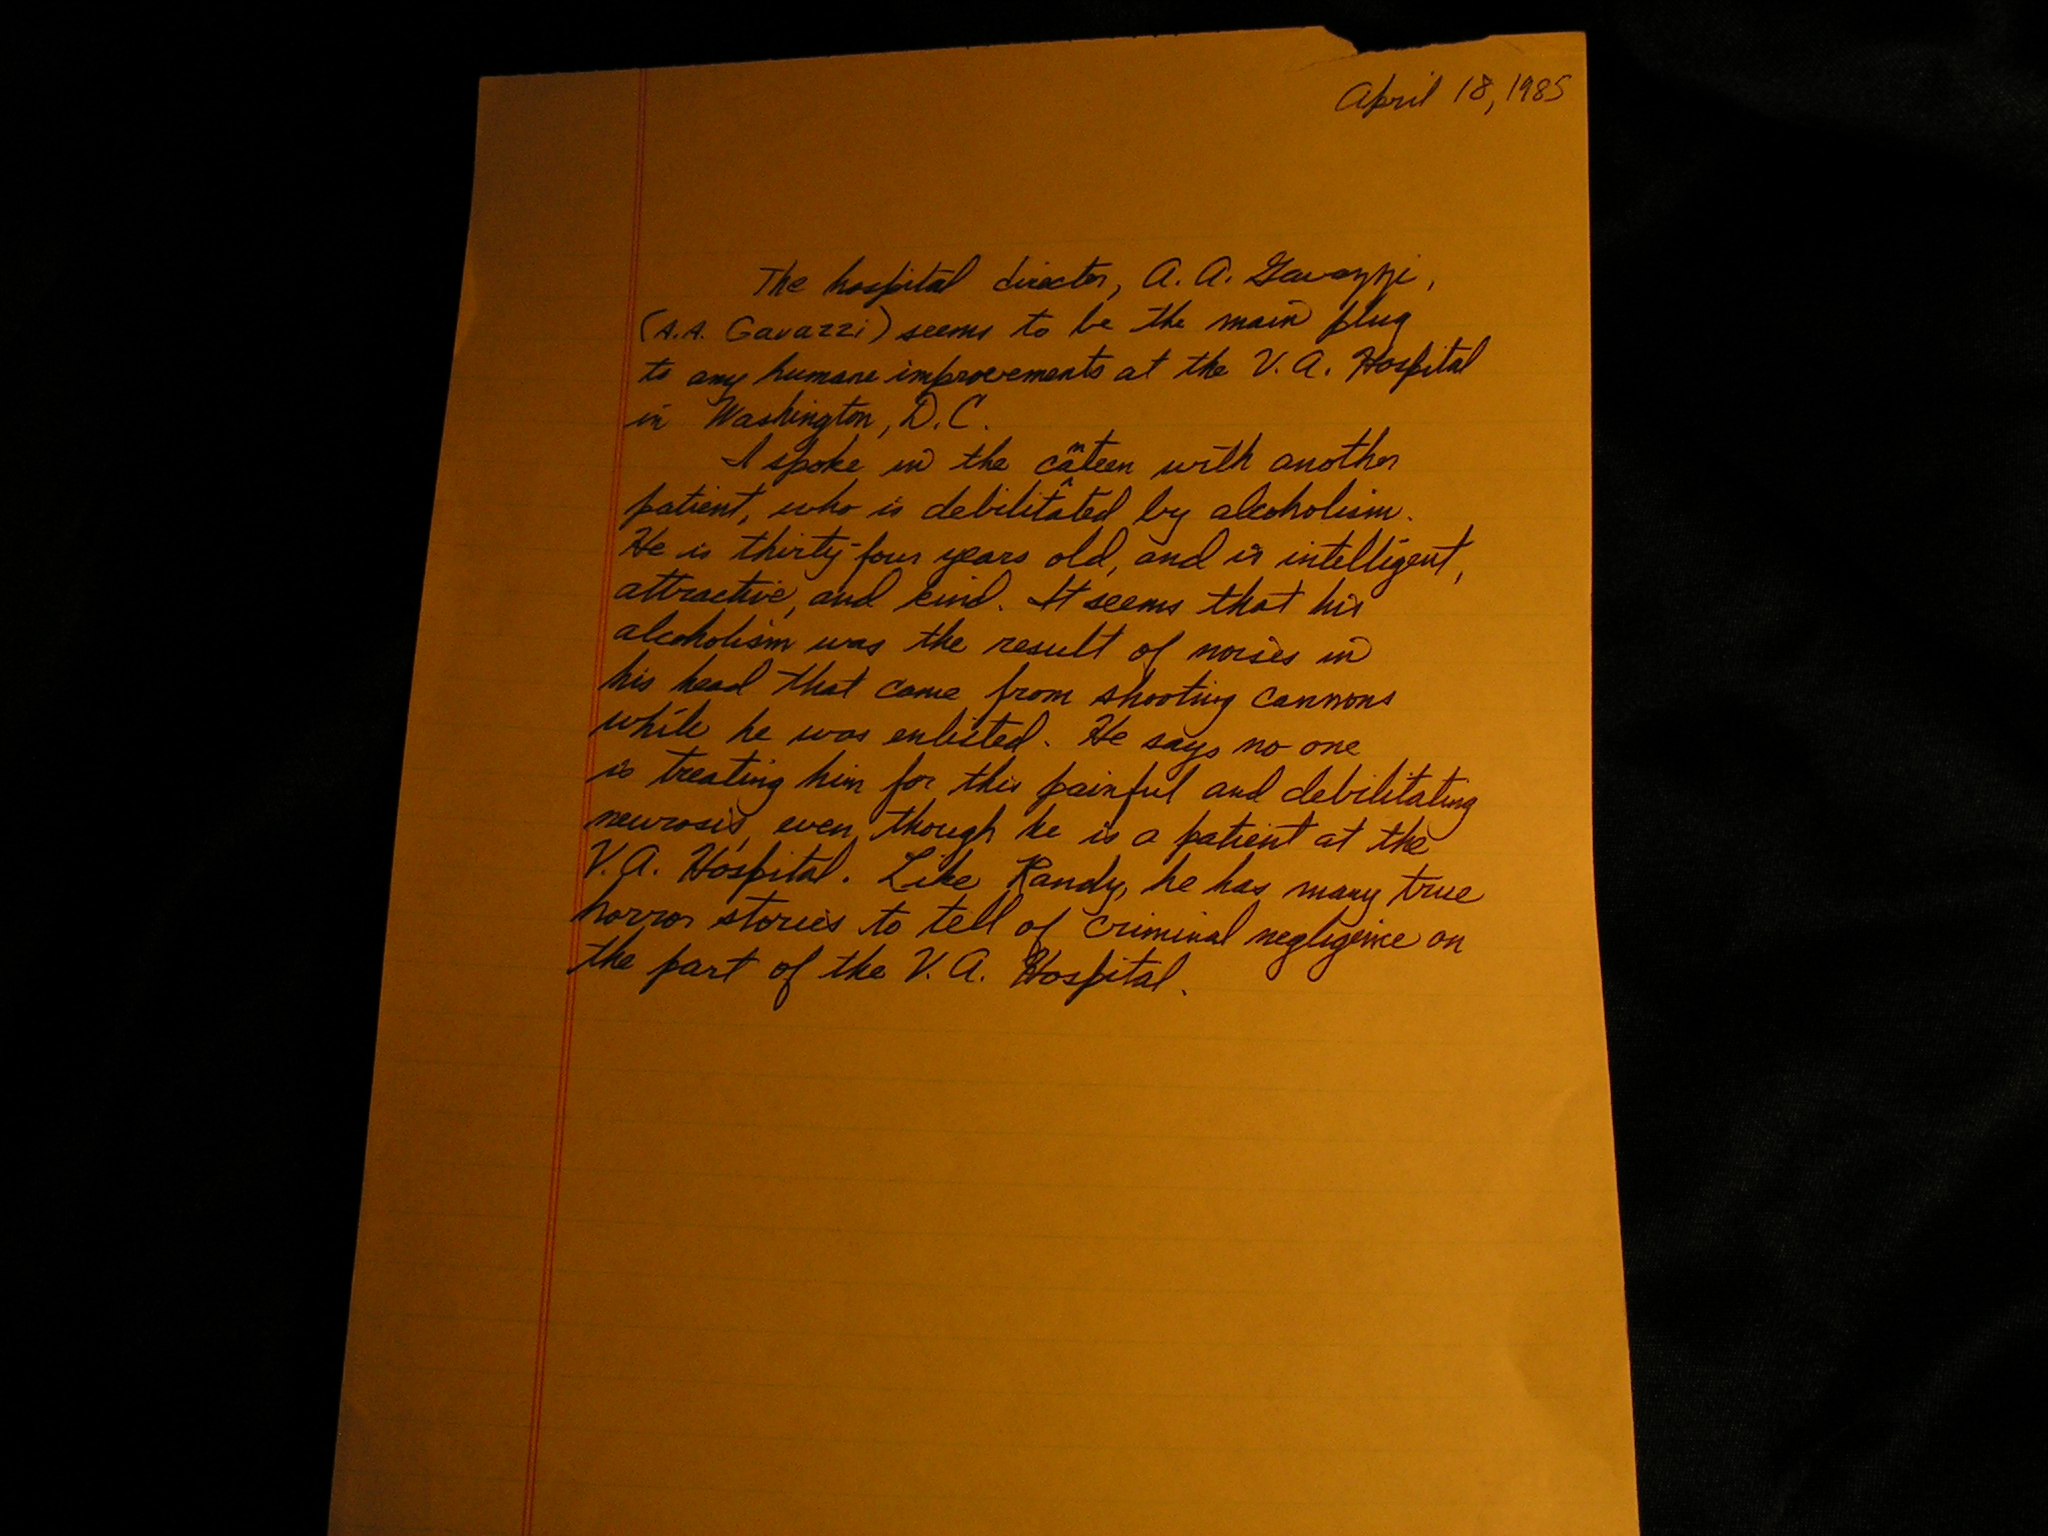 April 18, 1985
The hospital director, A. A. Gavazzi,
(A.A. Gavazzi) seems to be the main plug
to any humane improvements at the V. A. Hospital
in Washington, D.C.
I spoke in the canteen with another
patient, who is debilitated by alcoholism.
He is thirty-four years old, and is intelligent,
attractive, and kind. It seems that his
alcoholism was the result of noises in
his head that came from shooting cannons
while he was enlisted. He says no one
is treating him for this painful and debilitating
neurosis, even though he is a patient at the
V.A. Hospital. Like Randy, he has many true
horror stories to tell of criminal negligence on
the part of the V. A. Hospital.